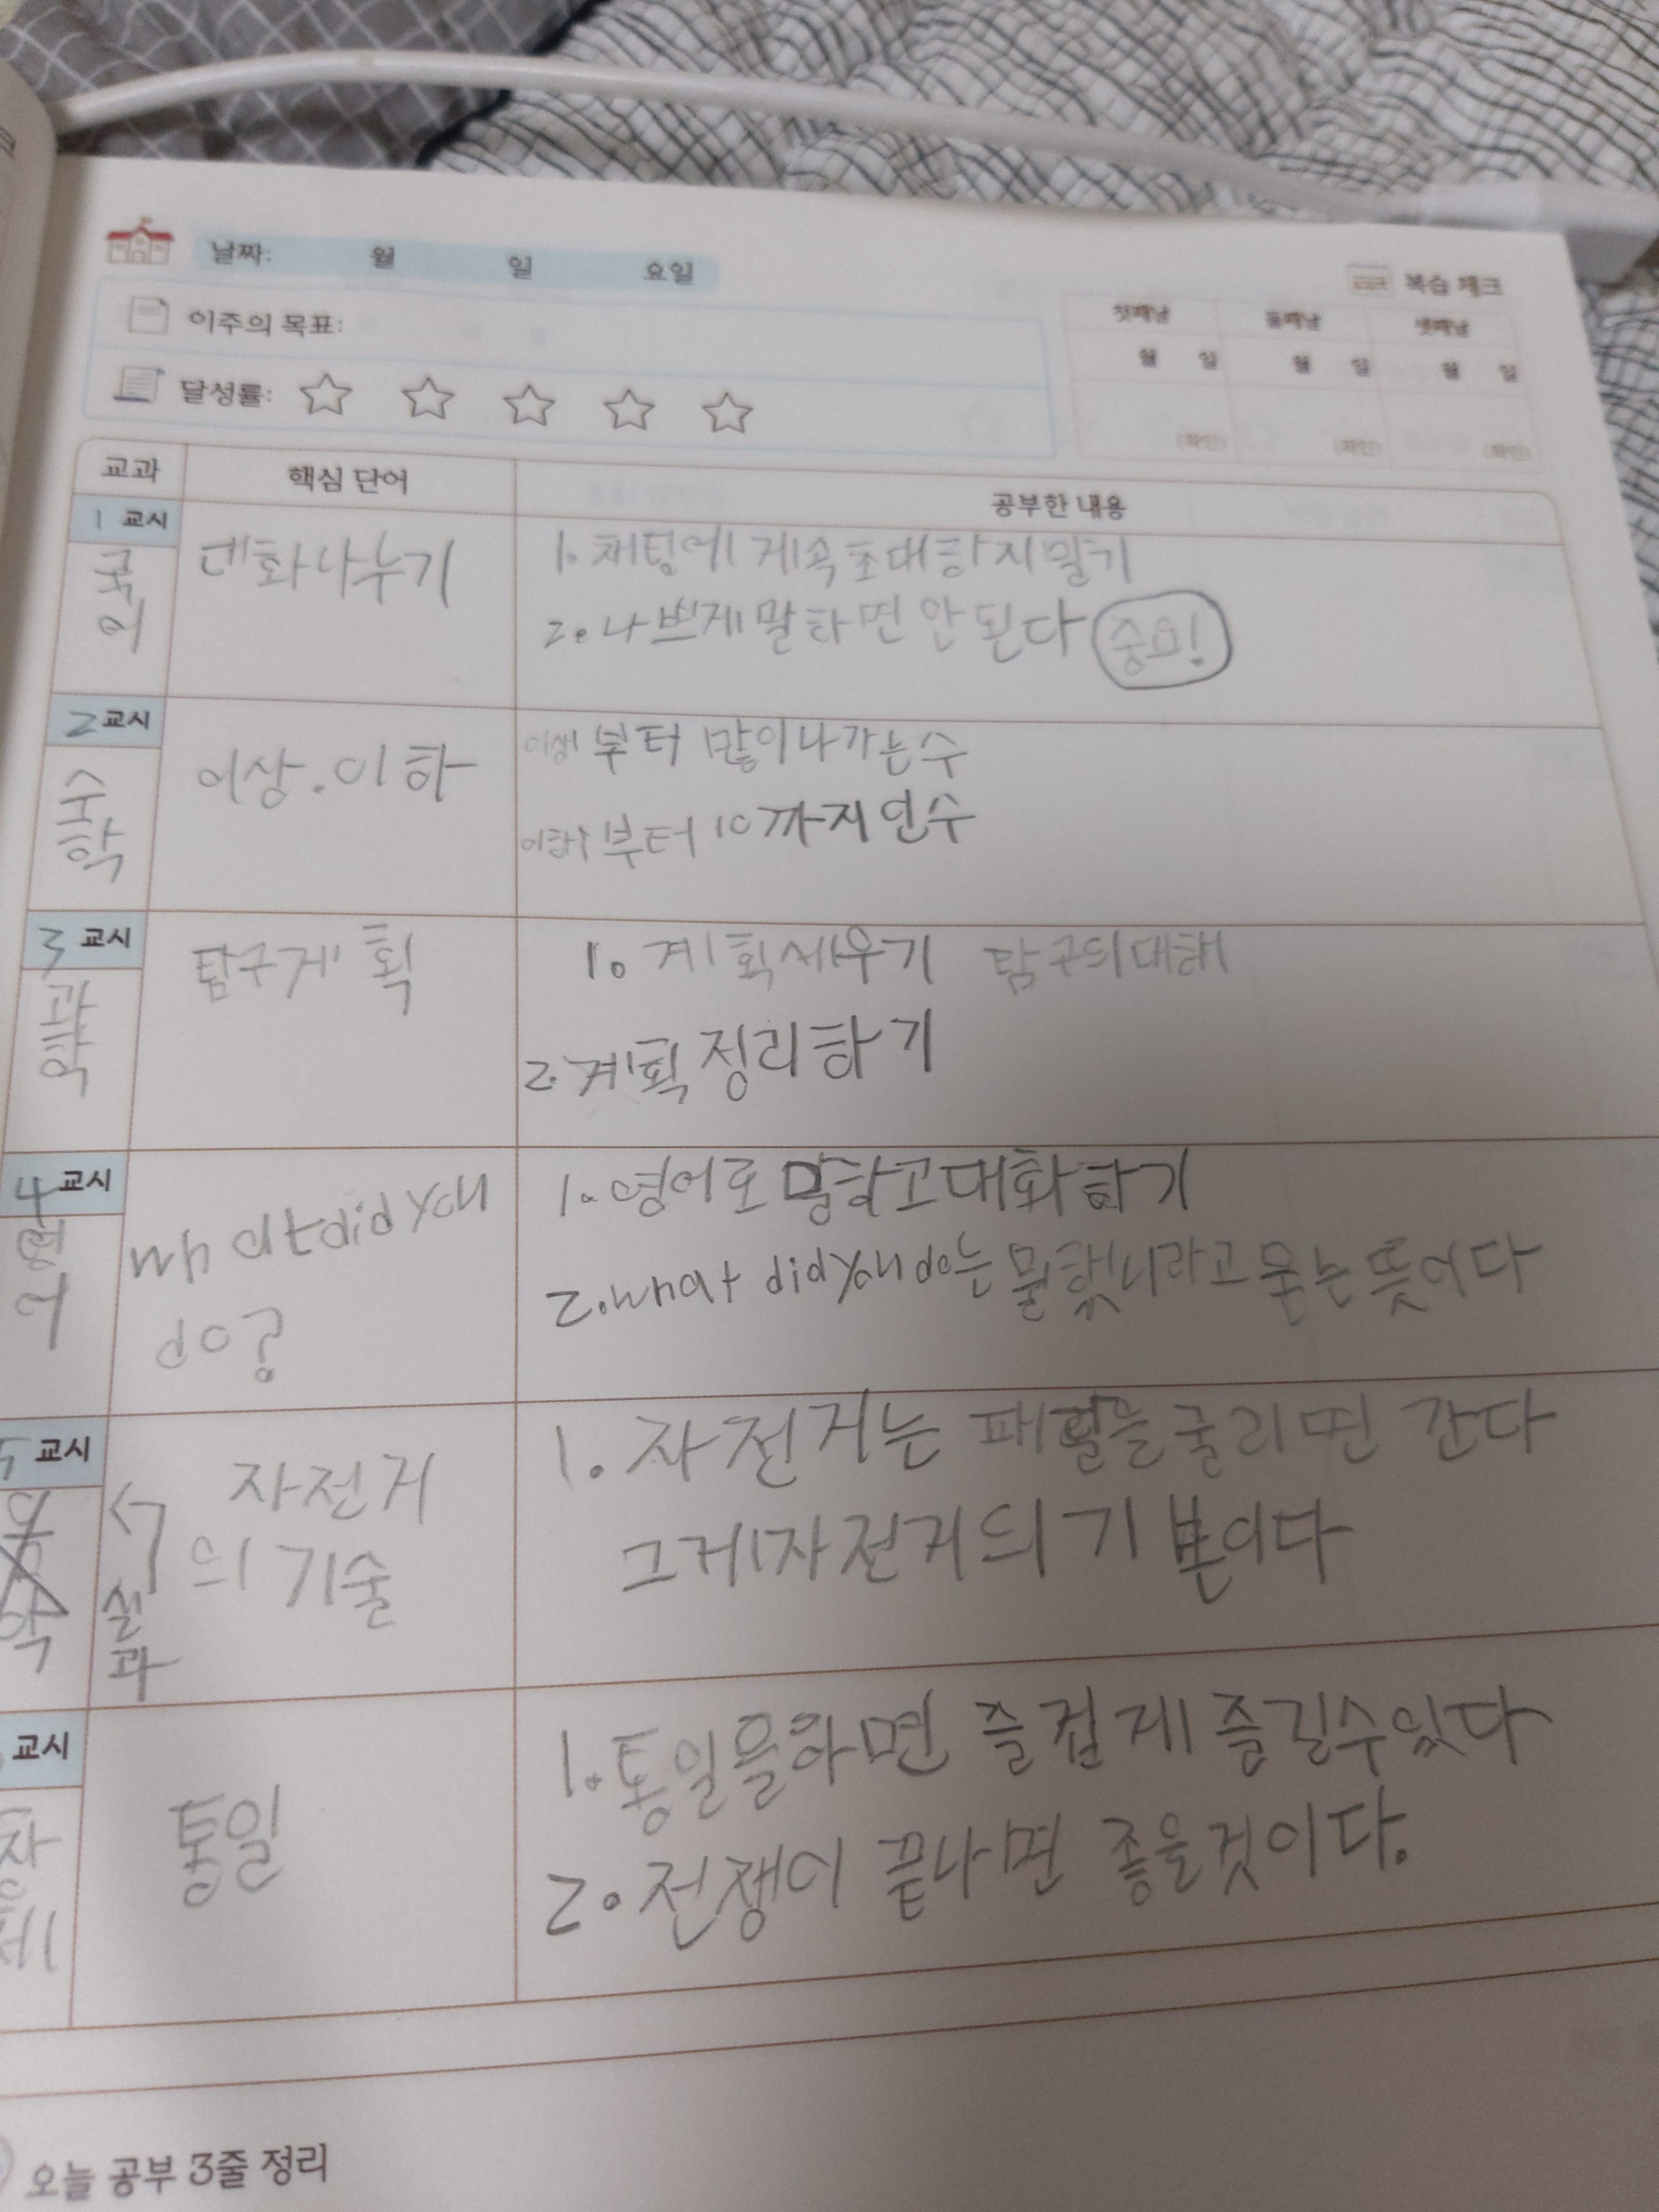 날짜: 월 일 요일
복습 체크
이주의 목표:
첫째날 둘째날 셋째날
월 일 월 일 월 일
달성률:
(확인) (확인) (확인)
교과 핵심 단어 공부한 내용
1 교시
국어
대화나누기
1. 채팅에 계속 초대하지말기
2. 나쁘게 말하면 안 된다 중요!
2 교시
수학
이상.이하
이상 부터 많이나가는수
이하 부터 10까지인수
3 교시
과학
탐구계획
1. 계획세우기 탐구의대해
2. 계획정리하기
4 교시
영어
what did you
do?
1. 영어로 말하고대화하기
2. what did you do는 뭘했니라고 묻는뜻이다
5 교시
실과
자전거
의 기술
1. 자전거는 패달을굴리면 간다
그게자전거의 기본이다
교시
통일
1. 통일을하면 즐겁게 즐길수있다
2. 전쟁이 끝나면 좋을것이다.
오늘 공부 3줄 정리